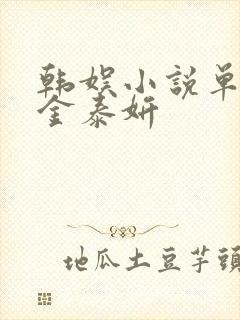 韩娱小說单
金泰妍
地瓜土豆芋頭